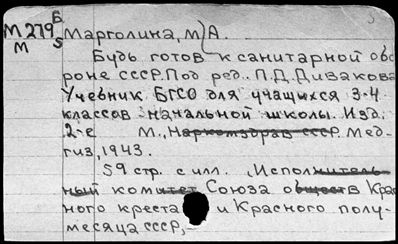 Б
М 279 Марголина, М. А.
М 5
Будь готов к санитарной обо
роне СССР. Под ред. П. Д. Дивакова
Учебник БГСО для учащихся 3-4
классов начальной школы. Изд.
2-е М., Наркомздрав СССР. Мед-
гиз, 1943.
59 стр. с илл. (Исполнитель-
ный комитет Союза обществ Крас
ного креста и Красного полу-
месяца СССР,-